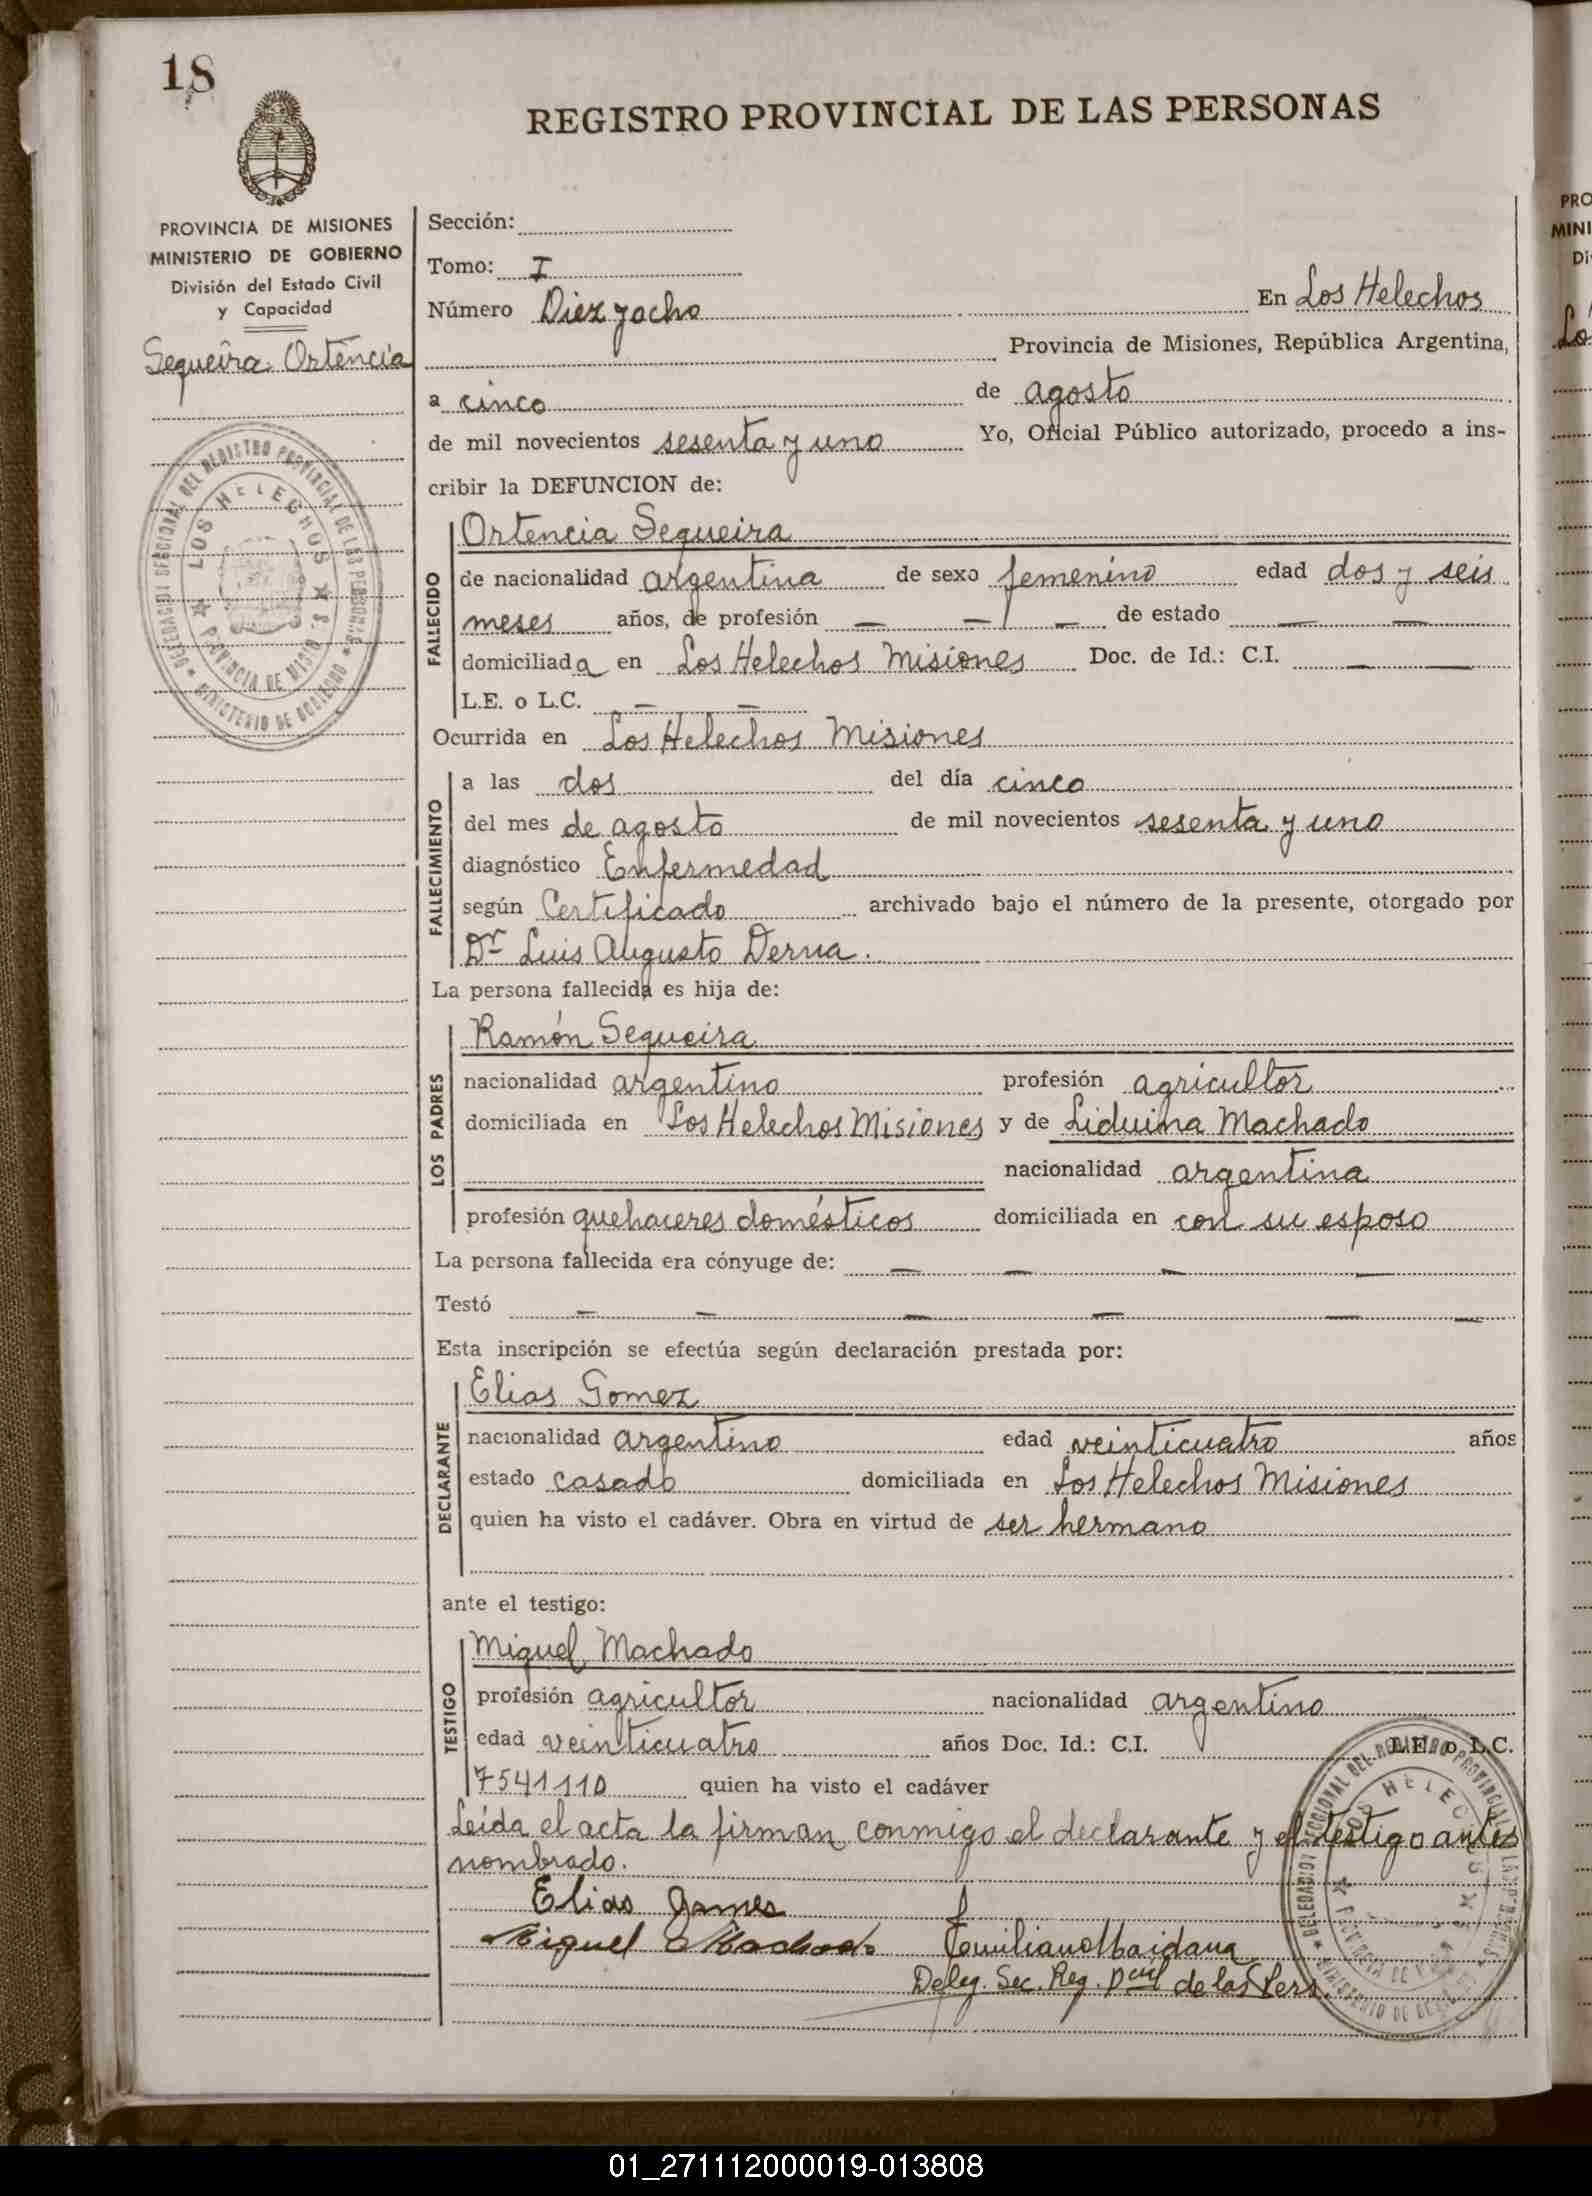 18
REGISTRO PROVINCIAL DE LAS PERSONAS
PROVINCIA DE MISIONES
MINISTERIO DE GOBIERNO
División del Estado Civil
y Capacidad
Sequeira Ortencia
DELEGACION SECCIONAL DEL REGISTRO PROVINCIAL DE LAS PERSONAS
LOS HELECHOS
PROVINCIA DE MISIO
MINISTERIO DE GOBIERNO
Sección:
Tomo: I
Número Diez y ocho En Los Helechos
Provincia de Misiones, República Argentina,
a cinco de agosto
de mil novecientos sesenta y uno Yo, Oficial Público autorizado, procedo a ins-
cribir la DEFUNCION de:
FALLECIDO
Ortencia Sequeira
de nacionalidad argentina de sexo femenino edad dos y seis
meses años, de profesión — — — de estado — —
domiciliada en Los Helechos Misiones Doc. de Id.: C.I. — —
L.E. o L.C. — —
Ocurrida en Los Helechos Misiones
FALLECIMIENTO
a las dos del día cinco
del mes de agosto de mil novecientos sesenta y uno
diagnóstico Enfermedad
según Certificado archivado bajo el número de la presente, otorgado por
Dr Luis Augusto Derna.
La persona fallecida es hija de:
LOS PADRES
Ramón Sequeira
nacionalidad argentino profesión agricultor
domiciliada en Los Helechos Misiones y de Liduina Machado
nacionalidad argentina
profesión quehaceres domésticos domiciliada en con su esposo
La persona fallecida era cónyuge de: — — — —
Testó — — — — — —
Esta inscripción se efectúa según declaración prestada por:
DECLARANTE
Elias Gomez
nacionalidad argentino edad veinticuatro años
estado casado domiciliada en Los Helechos Misiones
quien ha visto el cadáver. Obra en virtud de ser hermano
ante el testigo:
TESTIGO
Miguel Machado
profesión agricultor nacionalidad argentino
edad veinticuatro años Doc. Id.: C.I. L.E. o L.C.
7541110 quien ha visto el cadáver
Leída el acta la firman conmigo el declarante y el testigo antes
nombrado.
Elias Gomes
Miguel Machado Maidana
Deleg. Sec. Reg. Pcial de las Pers.
01_271112000019-013808